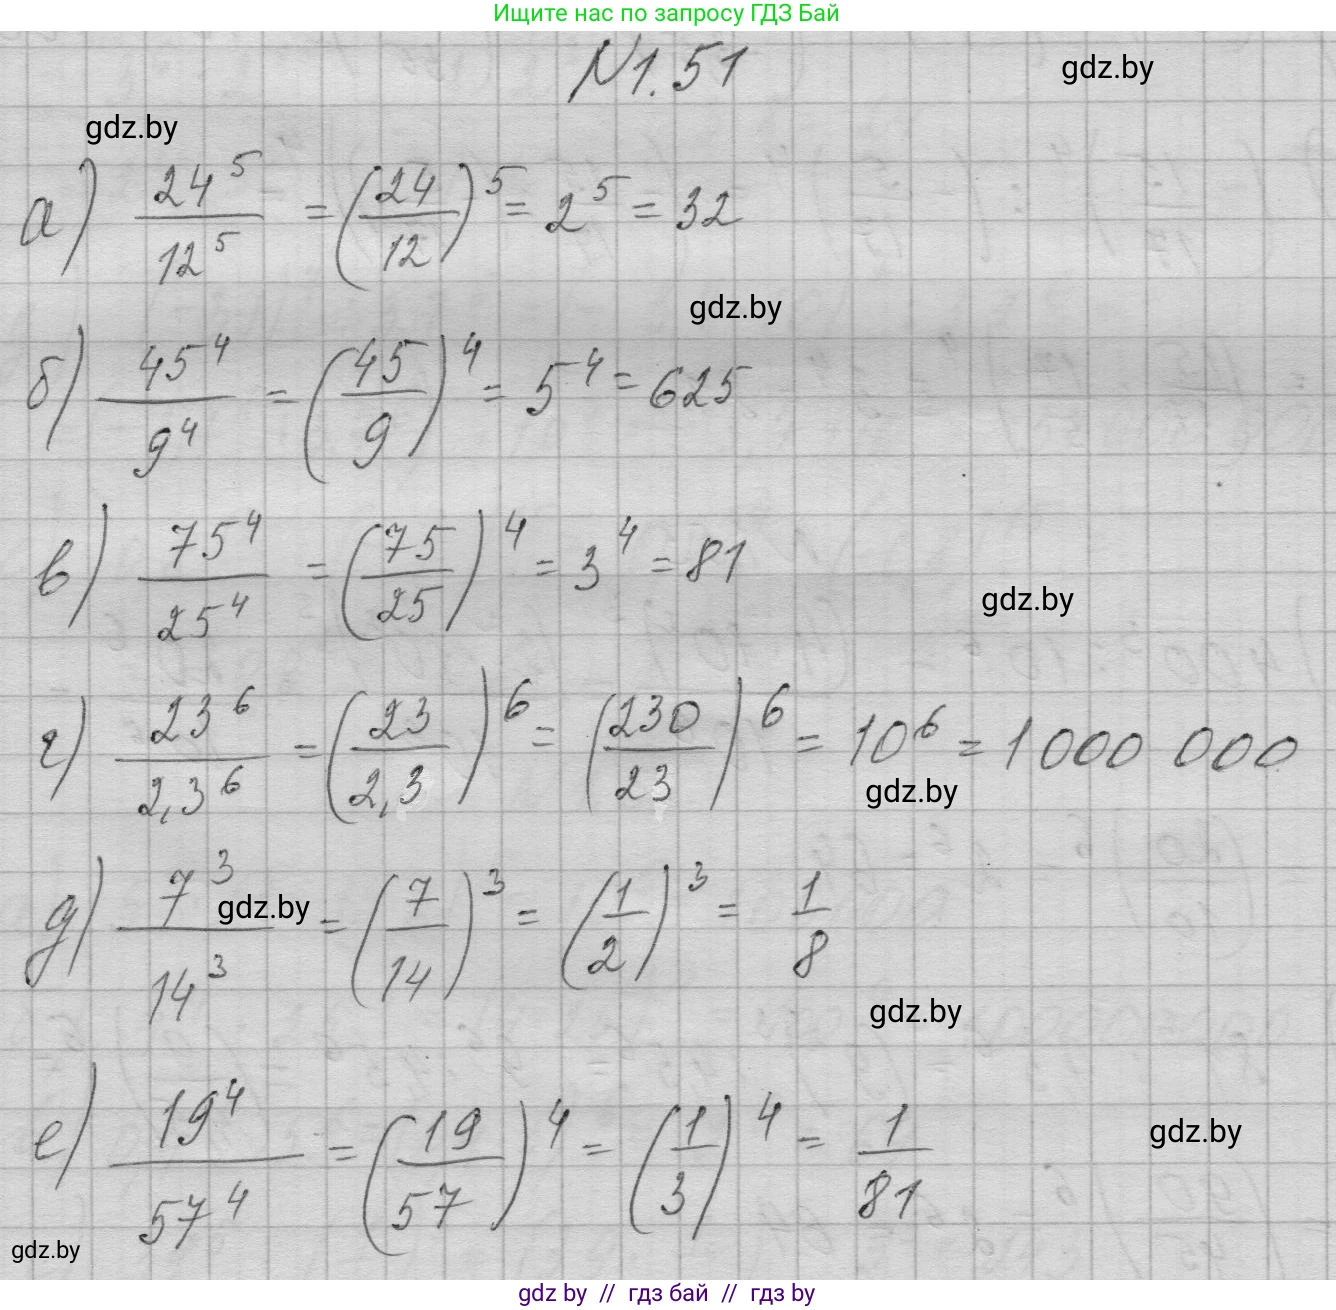 Ищите нас по запросу ГДЗ Бай
№1.51
gdz.by
gdz.by
а) 24^5/12^5 = (24/12)^5 = 2^5 = 32
gdz.by
б) 45^4/9^4 = (45/9)^4 = 5^4 = 625
в) 75^4/25^4 = (75/25)^4 = 3^4 = 81
gdz.by
г) 23^6/2,3^6 = (23/2,3)^6 = (230/23)^6 = 10^6 = 1000 000
gdz.by
д) 7^3/14^3 = (7/14)^3 = (1/2)^3 = 1/8
gdz.by
gdz.by
е) 19^4/57^4 = (19/57)^4 = (1/3)^4 = 1/81
gdz.by
gdz.by
gdz by // гдз бай // гдз by